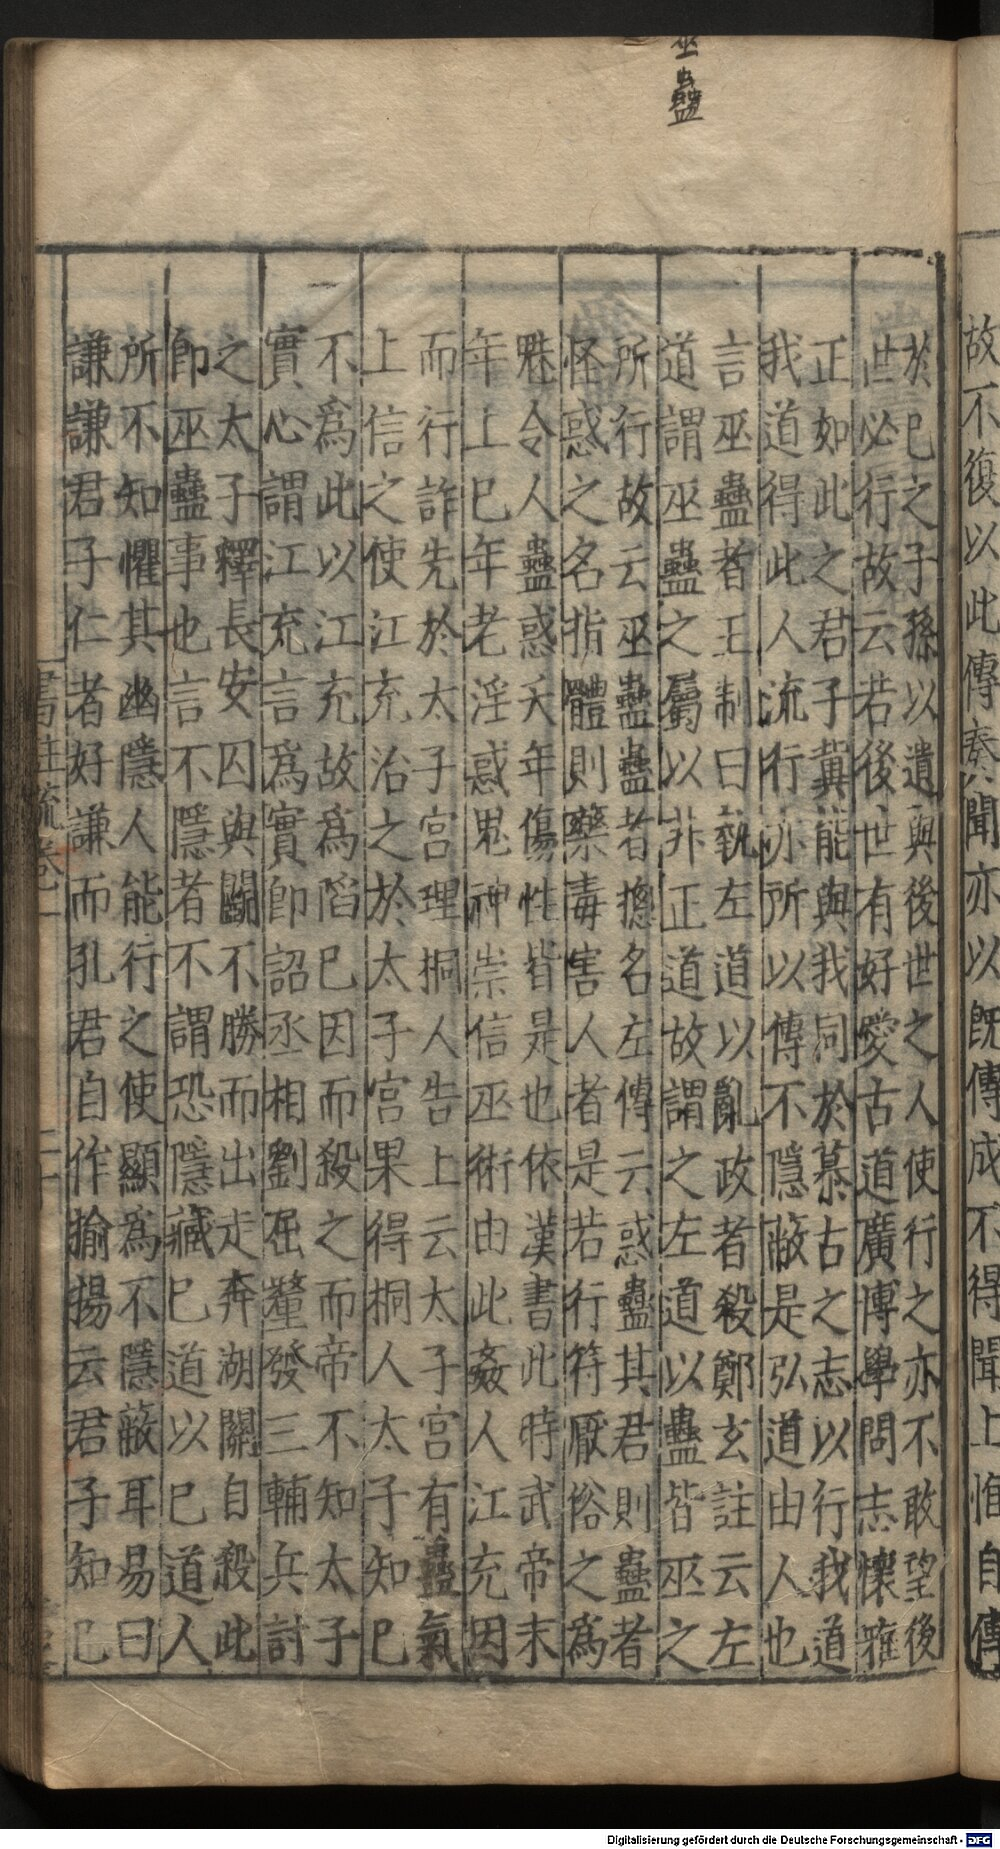 巫蠱
故不復以此傳奏聞亦以既傳成不得聞上惟自傳
於己之子孫以遺與後世之人使行之亦不敢望後
世必行故云若後世有好愛古道廣博學問志懷雅
正如此之君子冀能與我同於慕古之志以行我道
我道得此人流行亦所以傳不隱蔽是弘道由人也
言巫蠱者王制曰執左道以亂政者殺鄭玄註云左
道謂巫蠱之屬以非正道故謂之左道以蠱皆巫之
所行故云巫蠱蠱者揔名左傳云惑蠱其君則蠱者
怪惑之名指體則藥毒害人者是若行符厭俗之為
魅令人蠱惑夭年傷性皆是也依漢書此時武帝末
年上已年老淫惑鬼神崇信巫術由此姦人江充因
而行詐先於太子宮理桐人告上云太子宮有蠱氣
上信之使江充治之於太子宮果得桐人太子知已
不為此以江充故為陷已因而殺之而帝不知太子
實心謂江充言為實即詔丞相劉屈氂發三輔兵討
之太子釋長安囚與鬭不勝而出走奔湖關自殺此
即巫蠱事也言不隱者不謂恐隱藏已道以已道人
所不知懼其幽隱人能行之使顯為不隱蔽耳易曰
謙謙君子仁者好謙而孔君自作揄揚云君子知已
書註疏卷一
Digitalisierung gefördert durch die Deutsche Forschungsgemeinschaft - DFG